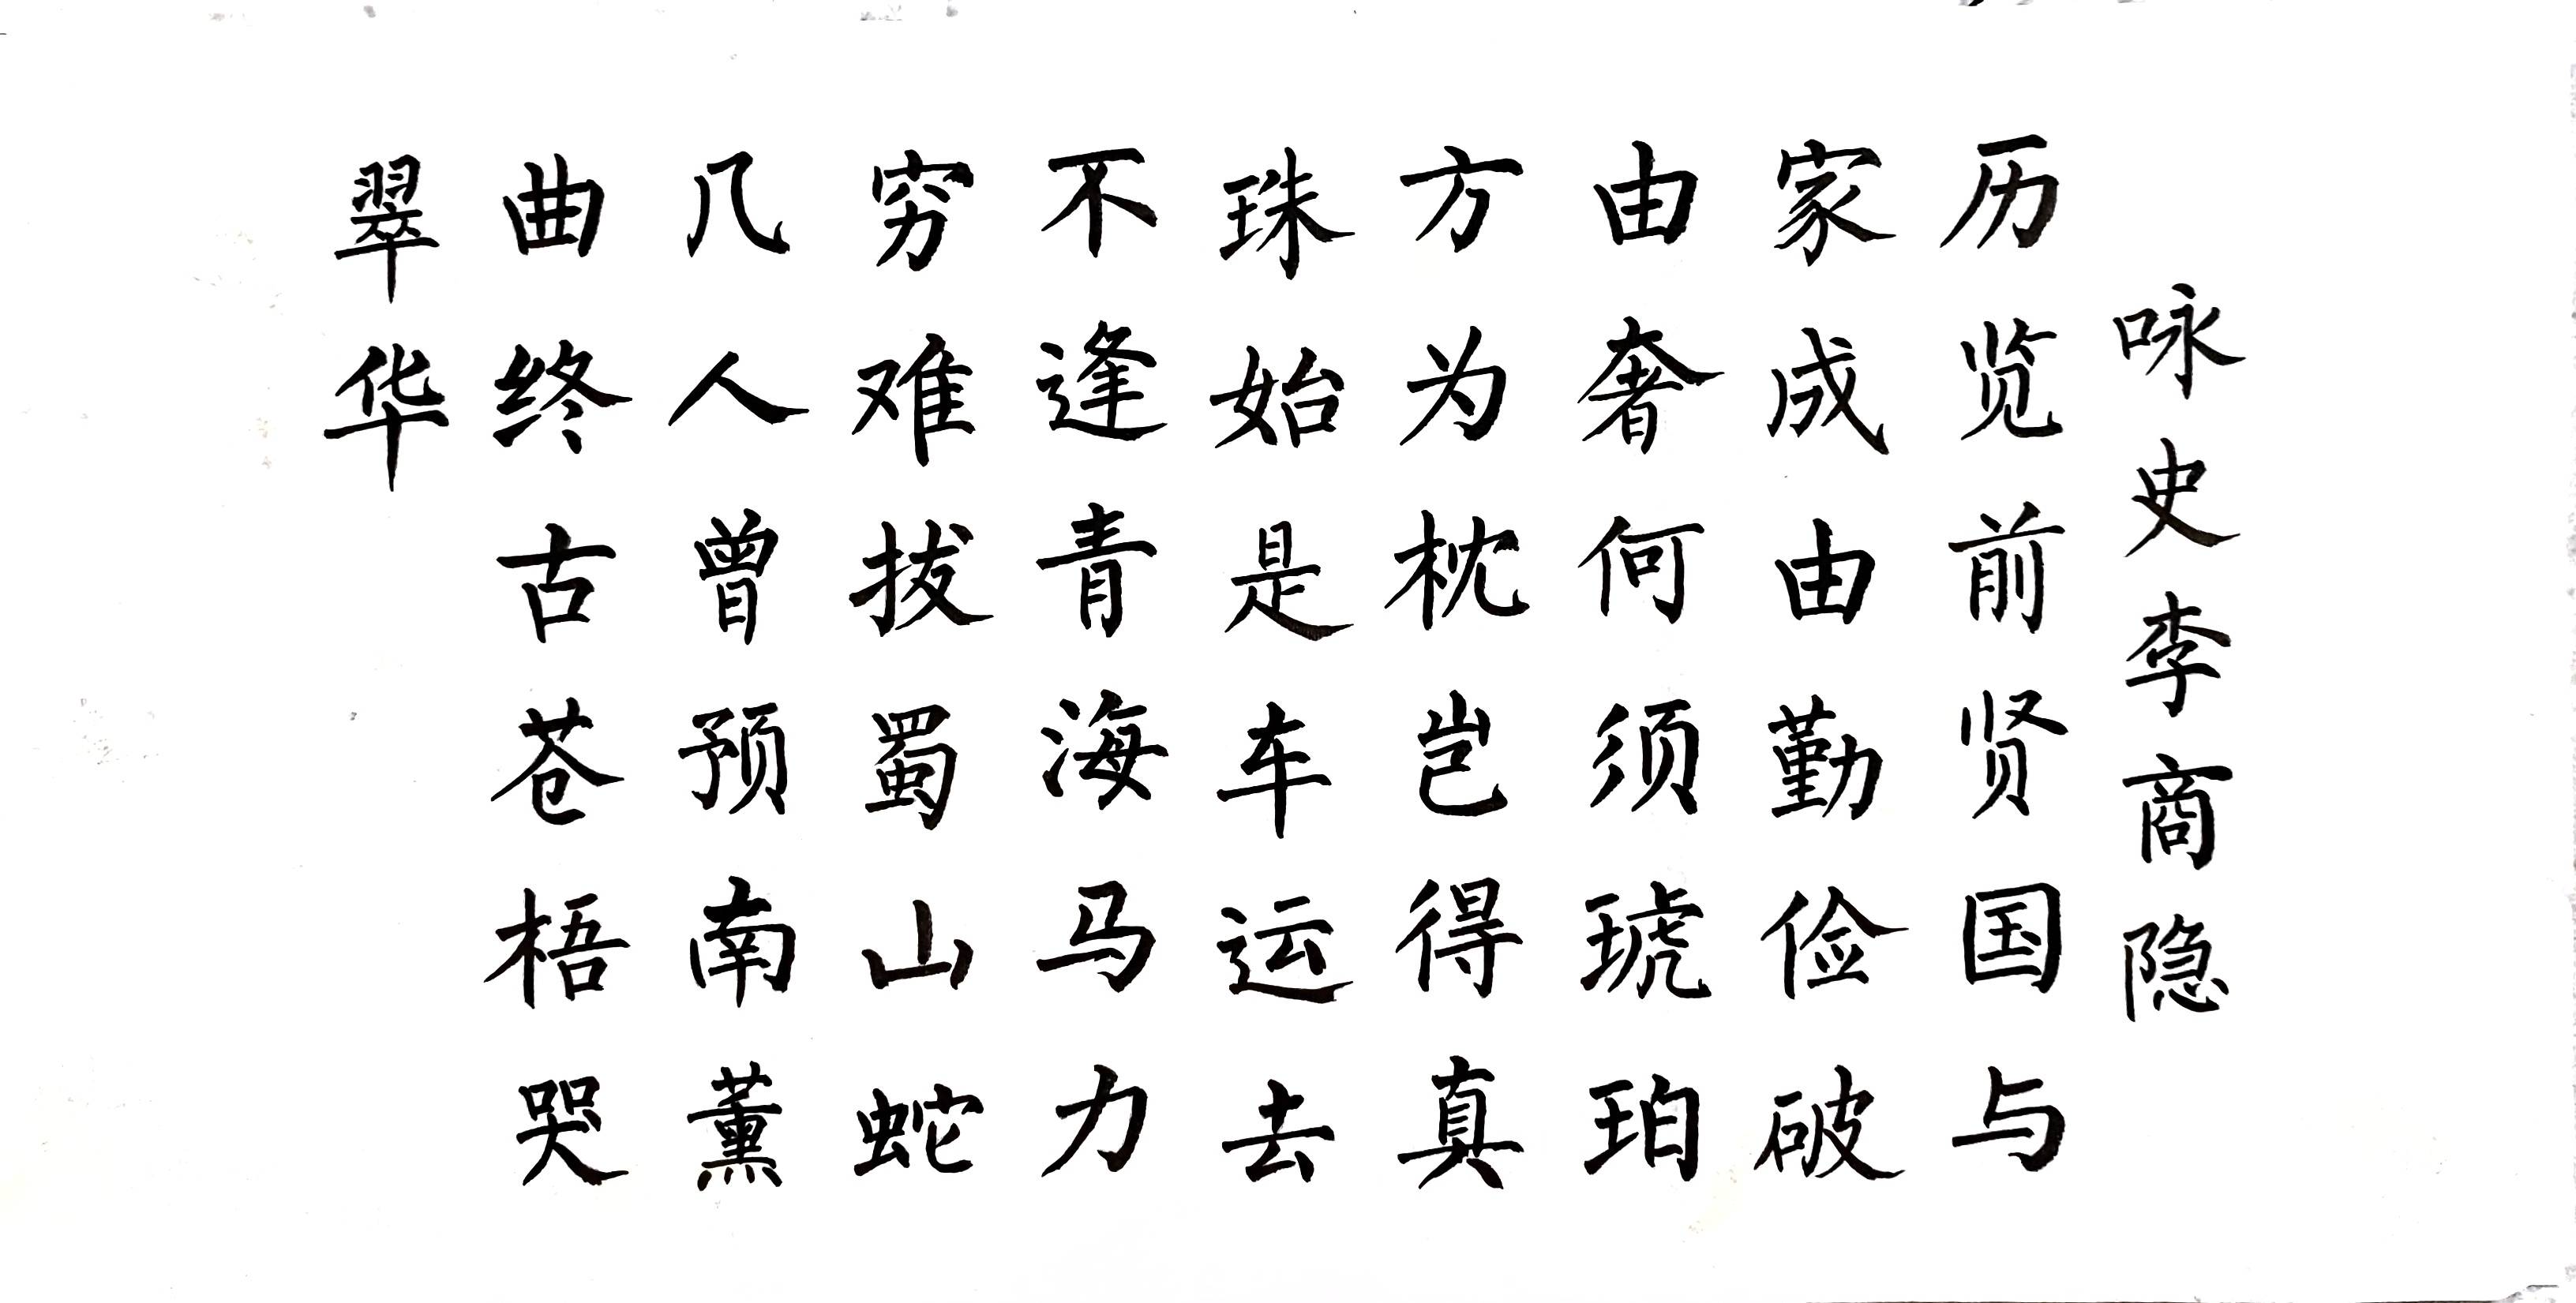 咏史李商隐
历览前贤国与
家成由勤俭破
由奢何须琥珀
方为枕岂得真
珠始是车运去
不逢青海马力
穷难拔蜀山蛇
几人曾预南薰
曲终古苍梧哭
翠华